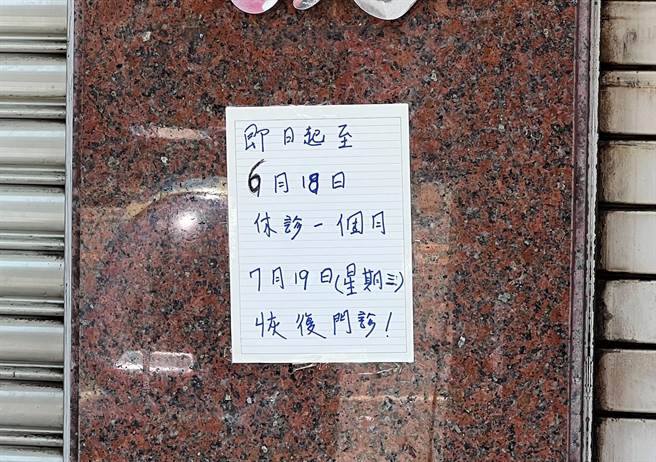 即日起至
6月18日
休診一個月
7月19日(星期三)
恢復門診!